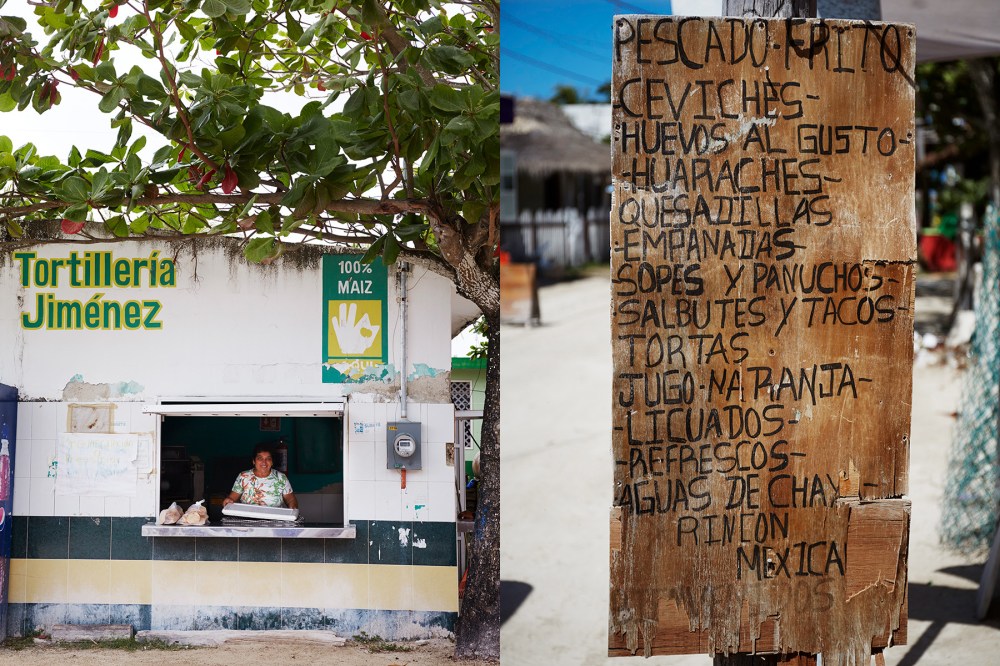 Tortillería
Jiménez
100%
MAIZ
PESCADO-FRITO
-CEVICHES-
-HUEVOS AL GUSTO-
-HUARACHES-
QUESADILLAS
-EMPANADAS-
SOPES Y PANUCHOS-
SALBUTES Y TACOS-
TORTAS
JUGO-NARANJA-
-LICUADOS-
-REFRESCOS-
-AGUAS DE CHAY -
RINCON
MEXICA